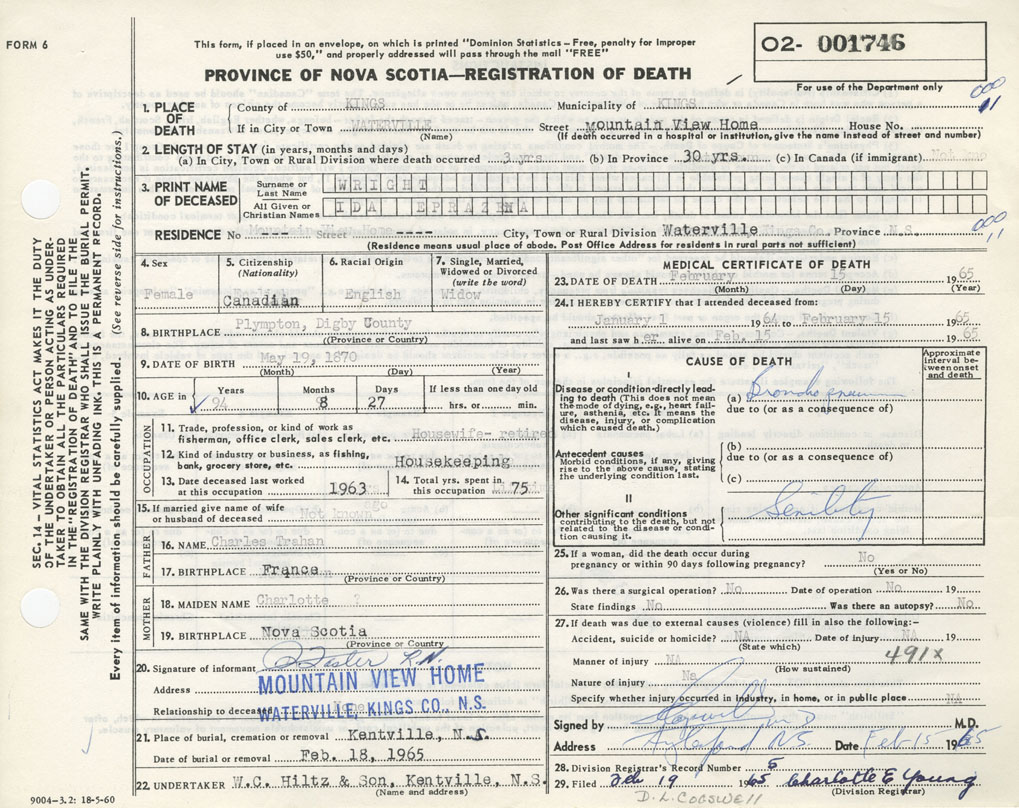 FORM 6
This form, if placed in an envelope, on which is printed "Dominion Statistics – Free, penalty for improper
use $50," and properly addressed will pass through the mail "FREE"
PROVINCE OF NOVA SCOTIA—REGISTRATION OF DEATH
O2- 001746
For use of the Department only
1. PLACE OF DEATH { County of KINGS Municipality of KINGS
If in City or Town WATERVILLE Street Mountain View Home House No.
(Name) (If death occurred in a hospital or institution, give the name instead of street and number)
2. LENGTH OF STAY (in years, months and days)
(a) In City, Town or Rural Division where death occurred 3 yrs. (b) In Province 30 yrs. (c) In Canada (if immigrant)
3. PRINT NAME OF DECEASED Surname or Last Name WRIGHT
All Given or Christian Names IDA
RESIDENCE No --- Street ---- City, Town or Rural Division Waterville Kings Co. Province N.S.
(Residence means usual place of abode. Post Office Address for residents in rural parts not sufficient)
000
11
000
11
SEC. 14 – VITAL STATISTICS ACT MAKES IT THE DUTY
OF THE UNDERTAKER OR PERSON ACTING AS UNDER-
TAKER TO OBTAIN ALL THE PARTICULARS REQUIRED
IN THE "REGISTRATION OF DEATH" AND TO FILE THE
SAME WITH THE DIVISION REGISTRAR WHO SHALL ISSUE THE BURIAL PERMIT.
WRITE PLAINLY WITH UNFADING INK. THIS IS A PERMANENT RECORD.
Every item of information should be carefully supplied. (See reverse side for instructions.)
4. Sex Female
5. Citizenship (Nationality) Canadian
6. Racial Origin English
7. Single, Married, Widowed or Divorced (write the word) Widow
8. BIRTHPLACE Plympton, Digby County
(Province or Country)
9. DATE OF BIRTH May 19, 1870
(Month) (Day) (Year)
10. AGE in Years 94 Months 8 Days 27 If less than one day old hrs. or min.
OCCUPATION
11. Trade, profession, or kind of work as
fisherman, office clerk, sales clerk, etc. Housewife- retired
12. Kind of industry or business, as fishing,
bank, grocery store, etc. Housekeeping
13. Date deceased last worked at this occupation 1963
14. Total yrs. spent in this occupation 75
15. If married give name of wife
or husband of deceased Not known
FATHER
16. NAME Charles Trahan
17. BIRTHPLACE France
(Province or Country)
MOTHER
18. MAIDEN NAME Charlotte ?
19. BIRTHPLACE Nova Scotia
(Province or Country)
20. Signature of informant R.N.
Address MOUNTAIN VIEW HOME
Relationship to deceased WATERVILLE, KINGS CO., N.S.
21. Place of burial, cremation or removal Kentville, N.S.
Date of burial or removal Feb. 18, 1965
22. UNDERTAKER W.C. Hiltz & Son, Kentville, N.S.
(Name and address)
9004–3.2: 18-5-60
MEDICAL CERTIFICATE OF DEATH
23. DATE OF DEATH February 15 1965
(Month) (Day) (Year)
24. I HEREBY CERTIFY that I attended deceased from:
January 1 1964 to February 15 1965
and last saw her alive on Feb. 15 1965
CAUSE OF DEATH
Approximate interval between onset and death
I
Disease or condition directly leading to death (This does not mean the mode of dying, e.g., heart failure, asthenia, etc. It means the disease, injury, or complication which caused death.)
(a)
due to (or as a consequence of)
Antecedent causes
Morbid conditions, if any, giving rise to the above cause, stating the underlying condition last.
(b)
due to (or as a consequence of)
(c)
II
Other significant conditions contributing to the death, but not related to the disease or condition causing it.
Senility
25. If a woman, did the death occur during
pregnancy or within 90 days following pregnancy? No
(Yes or No)
26. Was there a surgical operation? No Date of operation No 19
State findings No Was there an autopsy? No
27. If death was due to external causes (violence) fill in also the following:–
Accident, suicide or homicide? NA Date of injury NA 19
(State which)
Manner of injury NA 491x
(How sustained)
Nature of injury Na
Specify whether injury occurred in Industry, in home, or in public place NA
Signed by M.D.
Address N.S. Date Feb 15 1965
28. Division Registrar's Record Number 5
29. Filed Feb 19 1965 Charlotte E Young
(Division Registrar)
D. L. COGSWELL